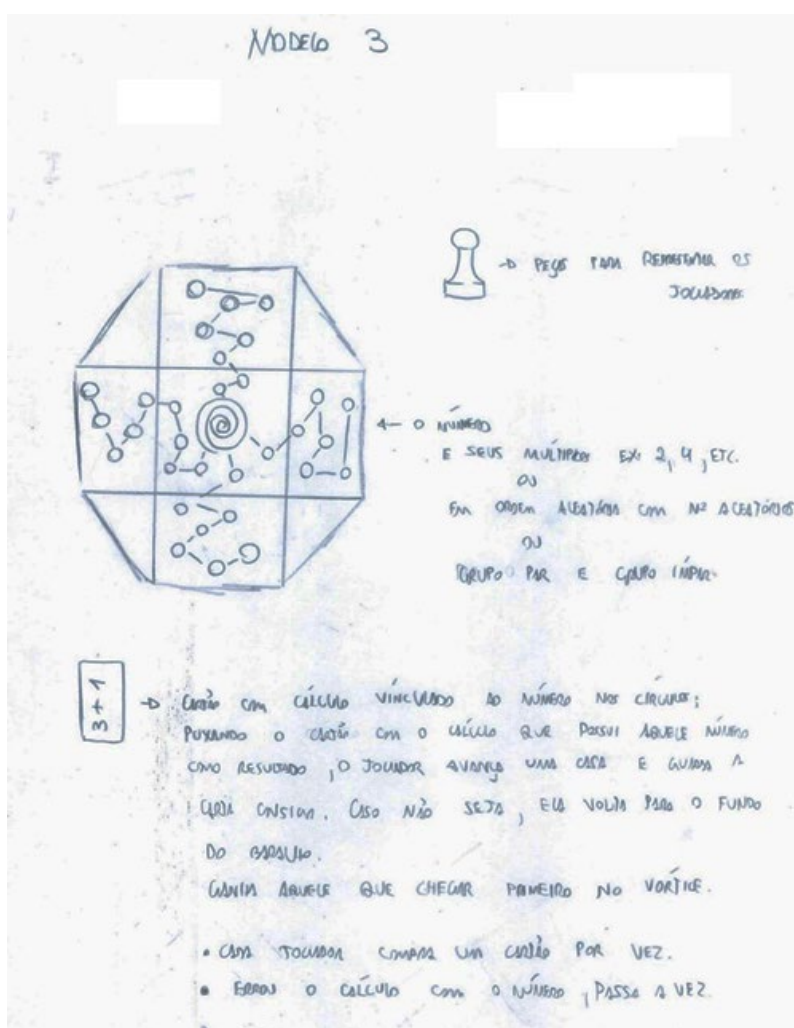 MODELO 3
→ PEÇAS PARA REPRESENTAR OS
JOGADORES
← O NÚMERO
E SEUS MÚLTIPLOS EX: 2, 4, ETC.
OU
EM ORDEM ALEATÓRIA COM Nº ALEATÓRIOS
OU
GRUPO PAR E GRUPO ÍMPAR.
3+1
→ CARTÃO COM CÁLCULO VINCULADO AO NÚMERO NOS CÍRCULOS;
PUXANDO O CARTÃO COM O CÁLCULO QUE POSSUI AQUELE NÚMERO
COMO RESULTADO, O JOGADOR AVANÇA UMA CASA E GUARDA A
CARTA CONSIGO. CASO NÃO SEJA, ELA VOLTA PARA O FUNDO
DO BARALHO.
GANHA AQUELE QUE CHEGAR PRIMEIRO NO VÓRTICE.
• CADA JOGADOR COMPRA UM CARTÃO POR VEZ.
• ERROU O CÁLCULO COM O NÚMERO, PASSA A VEZ.